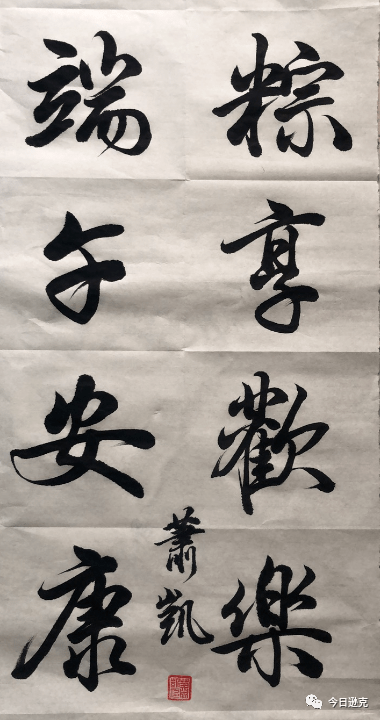 粽享歡樂
端午安康
蕭凱
今日逊克